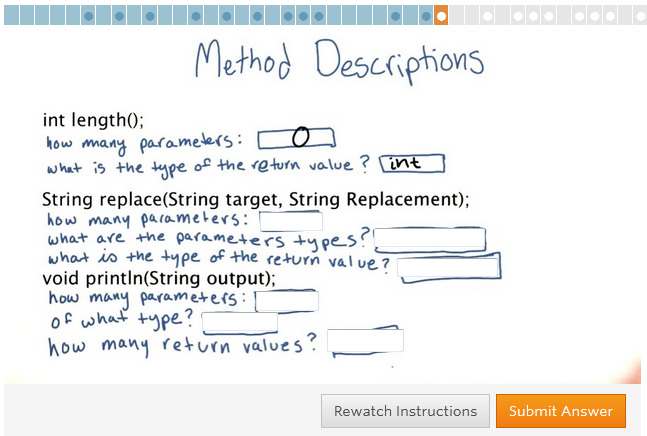 Method Descriptions
int length();
how many parameters: 0
what is the type of the return value? int
String replace(String target, String Replacement);
how many parameters:
what are the parameters types?
what is the type of the return value?
void println(String output);
how many parameters:
of what type?
how many return values?
Rewatch Instructions Submit Answer